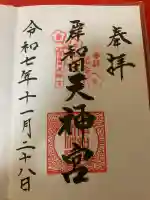 奉拝
岸和田天神宮
令和七年十一月二十八日